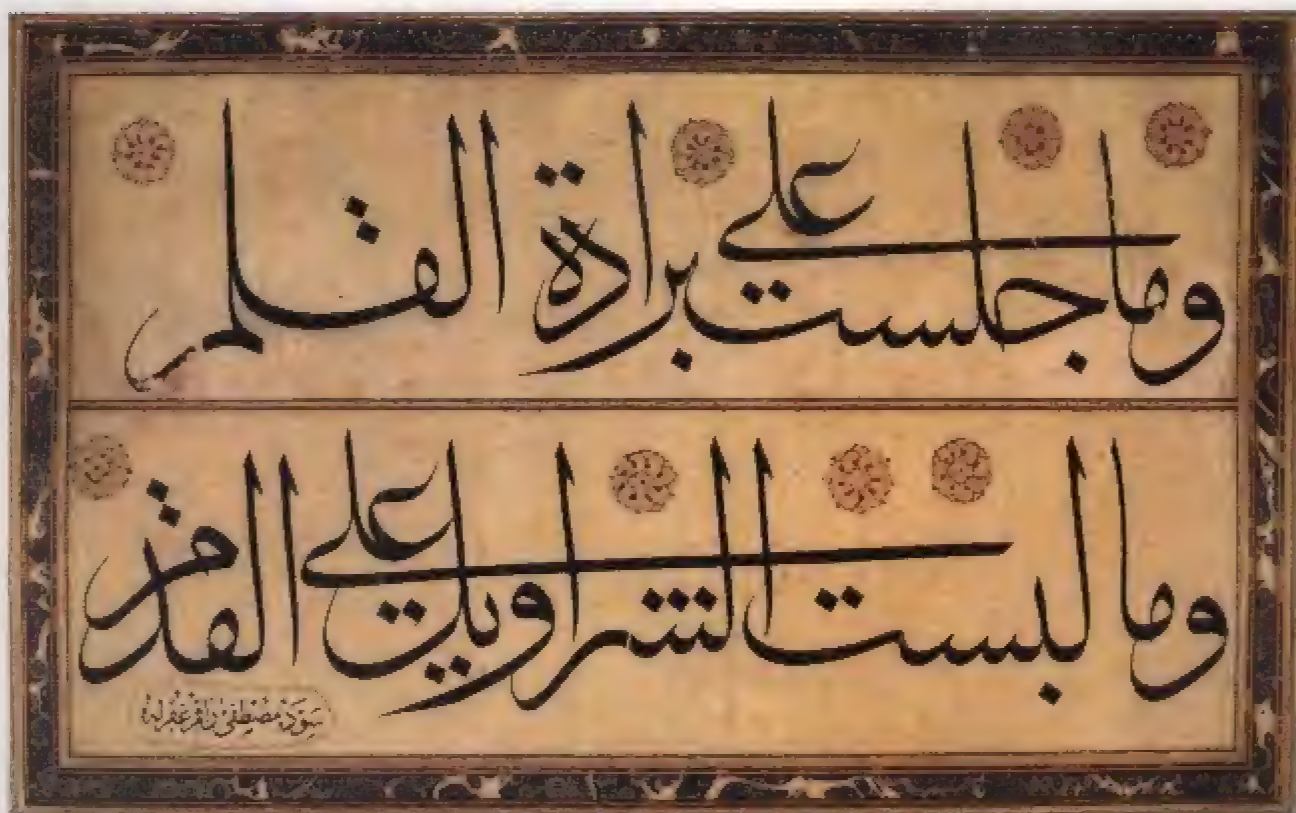 وما جلست على برادة القلم
وما لبست الشراويل على القدم
سوده مصطفى راقم غفر له